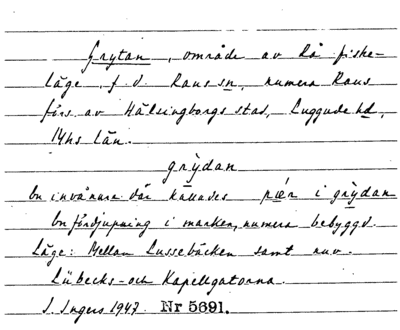 Grytan, område av Rå fiske-
läge, f. d. Raus sn, numera Raus
förs. av Hälsingborgs stad, Luggude hd,
Mhs län.
grỳdan
En invånare där kallades i grỳdan
En fördjupning i marken, numera bebyggd.
Läge: Mellan Lussebäcken samt nuv.
Lübecks- och Kapellgatorna.
I. Ingers 1947. Nr 5691.